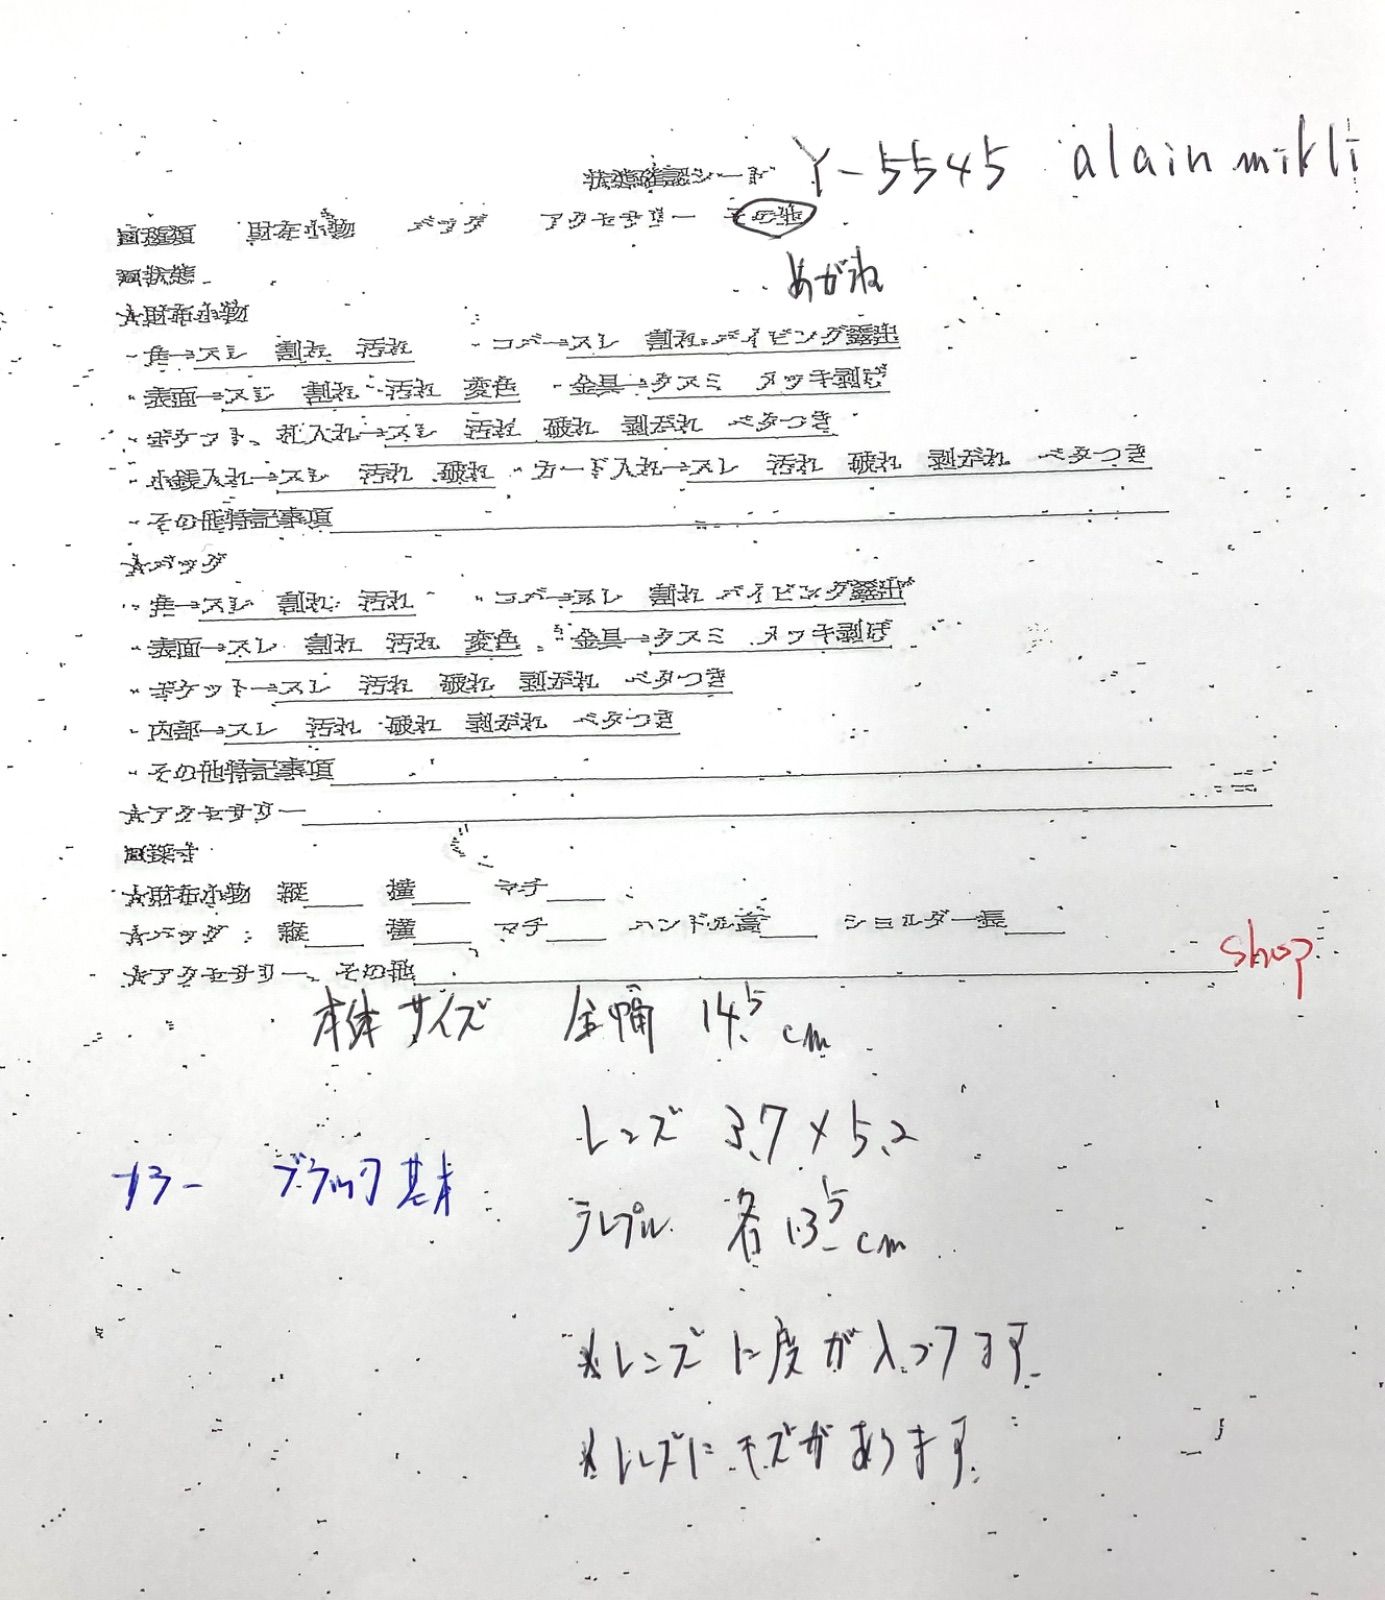 状態確認シート Y-5545 alain mikli
回種類 財布小物 バッグ アクセサリー その他
回状態 めがね
☆財布小物
・角→スレ 割れ 汚れ ・コバ→スレ 割れ パイピング露出
・表面→スレ 割れ 汚れ 変色 ・金具→クスミ メッキ剥げ
・ポケット、札入れ→スレ 汚れ 破れ 剥がれ ベタつき
・小銭入れ→スレ 汚れ 破れ ・カード入れ→スレ 汚れ 破れ 剥がれ ベタつき
・その他特記事項
☆バッグ
・角→スレ 割れ 汚れ ・コバ→スレ 割れ パイピング露出
・表面→スレ 割れ 汚れ 変色 ・金具→クスミ メッキ剥げ
・ポケット→スレ 汚れ 破れ 剥がれ ベタつき
・内部→スレ 汚れ 破れ 剥がれ ベタつき
・その他特記事項
☆アクセサリー
回採寸
☆財布小物 縦 横 マチ
☆バッグ 縦 横 マチ ハンドル高 ショルダー長
☆アクセサリー、その他 shop
本体サイズ 全幅 14.5cm
レンズ 3.7×5.2
カラー ブラック基本
テンプル 各13.5cm
※レンズに度が入ってます
※レンズにキズがあります